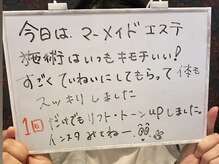 今日は、マーメイドエステ
施術はいつもキモチいい！
すごくていねいにしてもらって体も
スッキリしました
1回だけでもリフト・トーンupしました。
インスタみてねー。